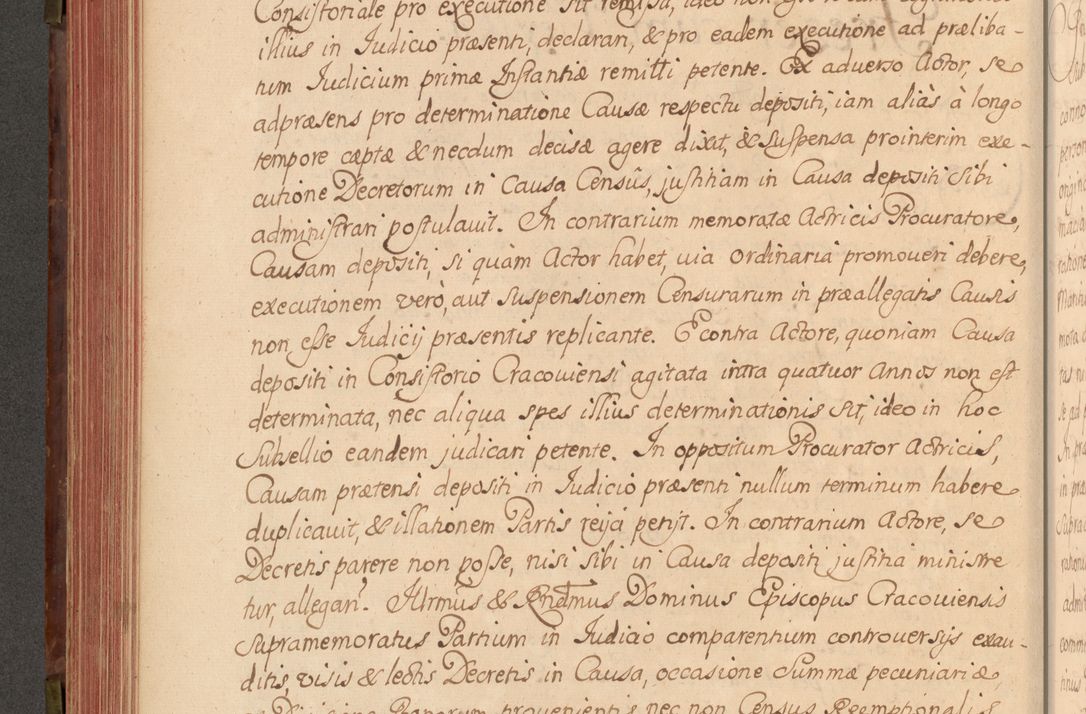 Consistoriale pro executione sit remissa, ideo non
illius in Judicio præsenti, declarari, & pro eadem executione ad præliba-
tum Judicium primæ Instantiæ remitti petente. Ex adverso Actor, se
adpræsens pro determinatione Causæ respectu depositi, iam aliàs à longo
tempore cæptæ & necdum decisæ agere dixit, & suspensa prointerim exe-
cutione Decretorum in Causa Censûs, justitiam in Causa depositi sibi
administrari postulavit. In contrarium memoratæ Actricis Procuratore,
Causam depositi, si quàm Actor habet, uia ordinaria promoveri debere,
executionem verò, aut suspensionem Censurarum in præallegatis Causis
non esse Judicij præsentis replicante. E contra Actore, quoniam Causa
depositi in Consistorio Cracoviensi agitata intra quatuor Annos non est
determinata, nec aliqua spes illius determinationis sit, ideo in hoc
Subsellio eandem judicari petente. In oppositum Procurator Actricis,
Causam prætensi depositi in Judicio præsenti nullum terminum habere
duplicavit, & illationem Partis reijci petijt. In contrarium Actore, se
Decretis parere non posse, nisi sibi in Causa depositi justitia ministre
tur, allegan?. Illrmus & Rndmus Dominus Episcopus Cracoviensis
supramemoratus Partium in Judicio comparentium controversijs exau-
ditis, visis & lectis Decretis in Causa, occasione Summæ pecuniariæ,
provenientis nec non Census Reemptionalis